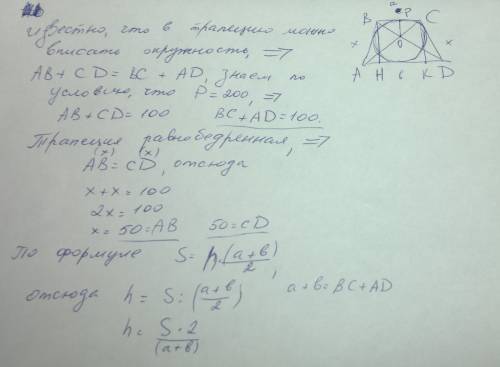 известно, что в трапецию можно
вписать окружность, =>
AB + CD = BC + AD, знаем по
условию, что P = 200, =>
AB + CD = 100 BC + AD = 100.
Трапеция равнобедренная, =>
(x) (x)
AB = CD, отсюда
x + x = 100
2x = 100
x = 50 = AB 50 = CD
По формуле S = h·(a+b)/2,
отсюда h = S : (a+b)/2) a+b = BC + AD
h = S·2/(a+b)
B P C
x O x
A H K D